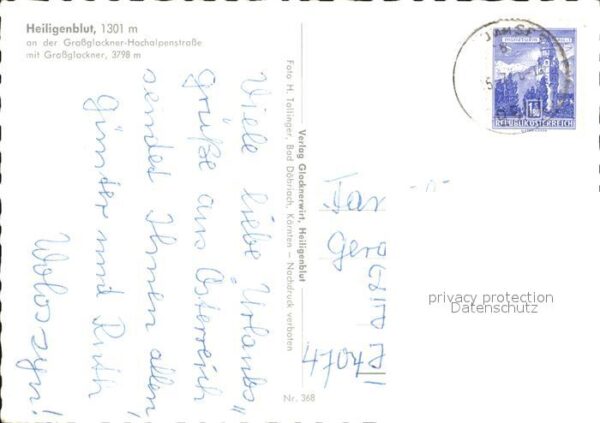 Heiligenblut, 1301 m
an der Großglockner-Hochalpenstraße
mit Großglockner, 3798 m
Viele liebe "Urlaubs"
grüße aus Österreich
sendet Ihnen allen
Günther und Ruth
Woloszyn!
Verlag Glocknerwirt, Heiligenblut
Foto H. Tollinger, Bad Döbriach, Kärnten – Nachdruck verboten
Nr. 368
REPUBLIK ÖSTERREICH
Fam
Gero
privacy protection
Datenschutz